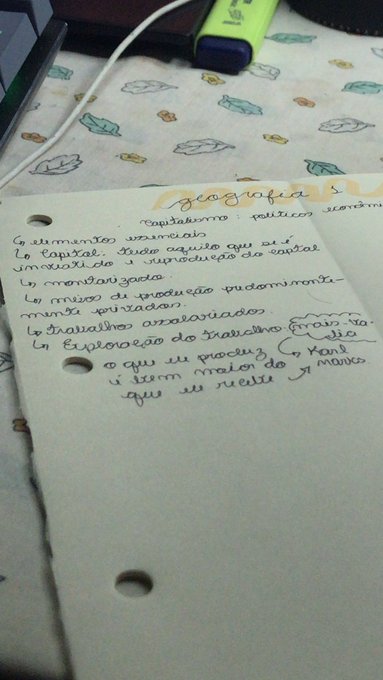 geografia 1
Capitalismo: políticos econômi
↳ elementos essenciais
↳ Capital: tudo aquilo que se é
investido e reprodução do capital
↳ monetarizado.
↳ meios de produção predominante-
mente privados.
↳ trabalhos assalariados.
↳ Exploração do trabalho: mais-va-
lia
o que eu produz ↳ Karl
é bem maior do Marx
que eu recebe